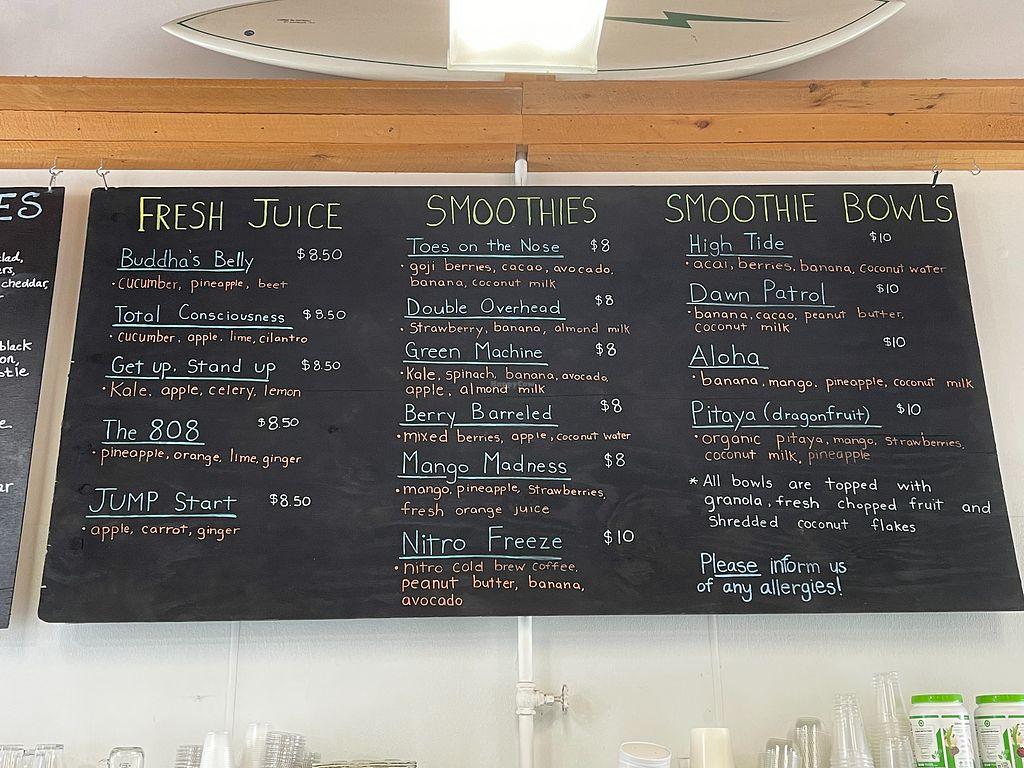 ES
lad,
ers,
cheddar,
black
on,
stie
e
ar
FRESH JUICE
Buddha's Belly $8.50
• cucumber, pineapple, beet
Total Consciousness $8.50
• cucumber, apple, lime, cilantro
Get up, Stand up $8.50
• Kale, apple, celery, lemon
The 808 $8.50
• pineapple, orange, lime, ginger
JUMP Start $8.50
• apple, carrot, ginger
SMOOTHIES
Toes on the Nose $8
• goji berries, cacao, avocado,
banana, coconut milk
Double Overhead $8
• Strawberry, banana, almond milk
Green Machine $8
• Kale, spinach, banana, avocado,
apple, almond milk
Berry Barreled $8
• mixed berries, apple, coconut water
Mango Madness $8
• mango, pineapple, strawberries,
fresh orange juice
Nitro Freeze $10
• nitro cold brew coffee,
peanut butter, banana,
avocado
SMOOTHIE BOWLS
High Tide $10
• acai, berries, banana, coconut water
Dawn Patrol $10
• banana, cacao, peanut butter,
coconut milk
Aloha $10
• banana, mango, pineapple, coconut milk
Pitaya (dragonfruit) $10
• organic pitaya, mango, strawberries,
coconut milk, pineapple
* All bowls are topped with
granola, fresh chopped fruit and
shredded coconut flakes
Please inform us
of any allergies!